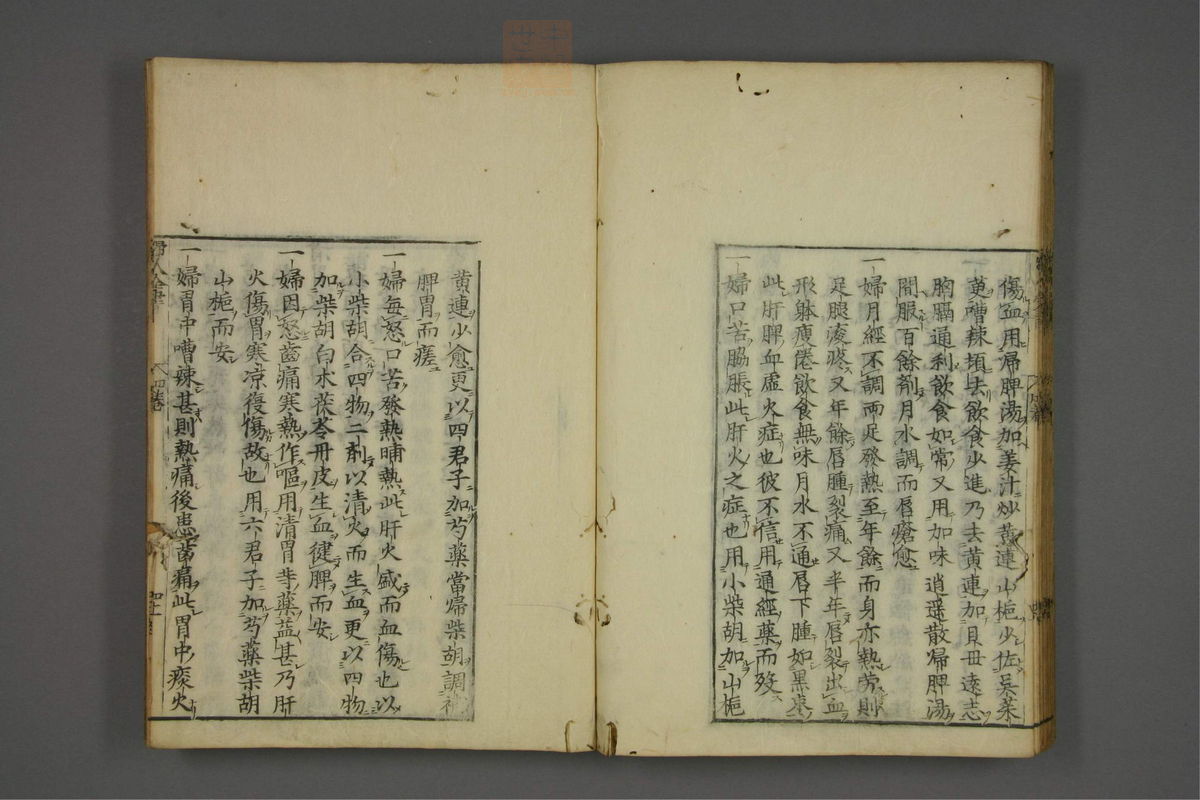 傷血用歸脾湯加姜汁炒黄連山梔少佐吳茱
萸嘈辣頓去飲食少進乃去黄連加貝母遠志
胸膈通利飲食如常又用加味逍遥散歸脾湯
間服百餘劑月水調而唇瘡愈
一婦月經不調兩足發熱至年餘而身亦熱勞則
足腿痠疼又年餘唇腫裂痛又半年唇裂出血
形躰瘦倦飲食無味月水不通唇下腫如黒棗
此肝脾血虚火症也彼不信用通經藥而歿
一婦口苦脇脹此肝火之症也用小柴胡加山梔
黄連少愈更以四君子加芍藥當歸柴胡調補
脾胃而瘥
一婦每怒口苦發熱晡熱此肝火盛而血傷也以
小柴胡合四物二劑以清火而生血更以四物
加柴胡白木茯苓丹皮生血健脾而安
一婦因怒齒痛寒熱作嘔用清胃寺藥益甚乃肝
火傷胃寒凉復傷故也用六君子加芍藥柴胡
山梔而安
一婦胃中嘈辣甚則熱痛後患齒痛此胃中痰火